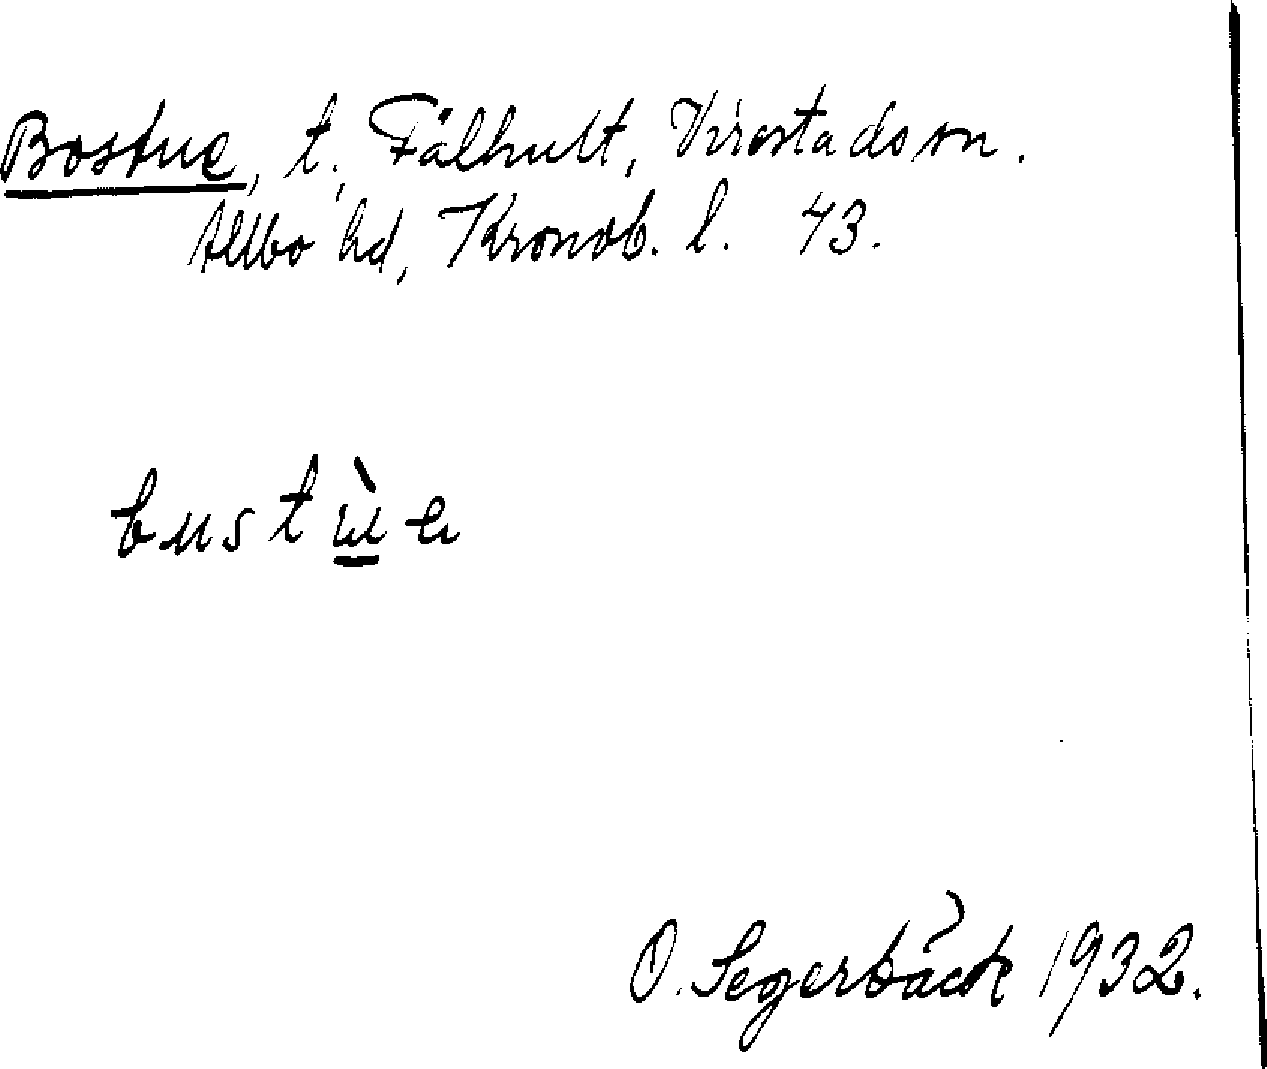 Bostue, t. Fälhult, Virestads sn.
Allbo hd, Kronob. l. 43.
bustù̲e
O. Segerbäck 1932.